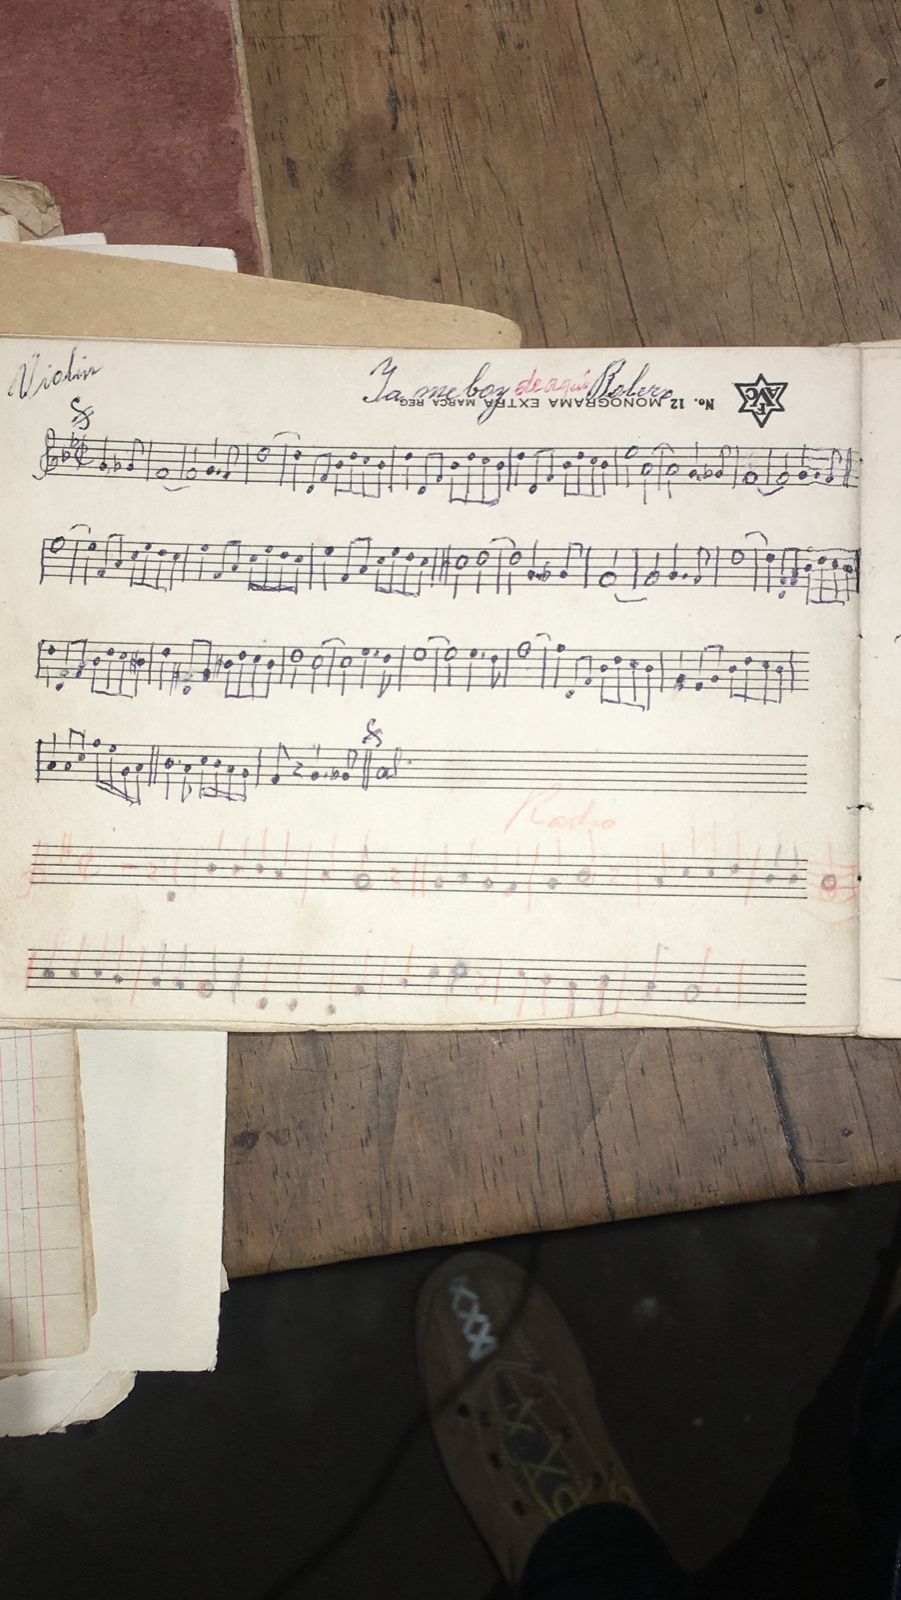 Violin
Ya me boy de aqui Bolero
No. 12 MONOGRAMA EXTRA MARCA REG.
al
Radio